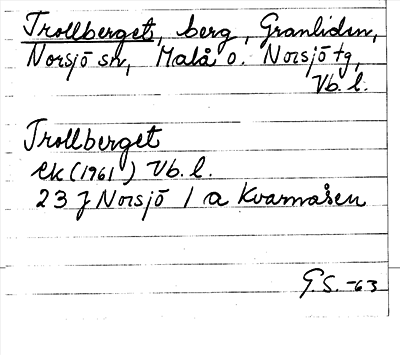 Trollberget, berg, Granliden,
Norsjö sn, Malå o. Norsjö tg,
Vb. l.
Trollberget
ek (1961) Vb. l.
23 J Norsjö 1 a Kvarnåsen
G.S. -63